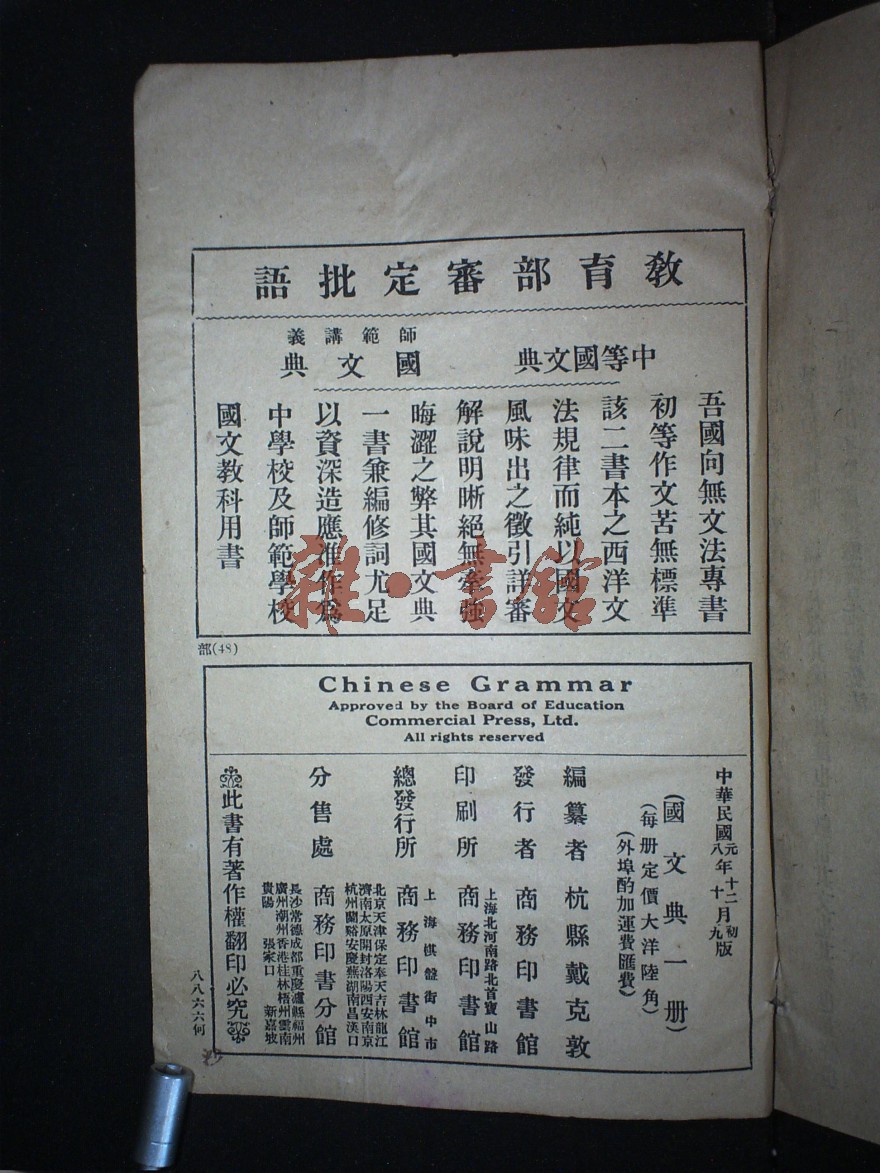 教育部審定批語
中等國文典
師範講義
國文典
吾國向無文法專書
初等作文苦無標準
該二書本之西洋文
法規律而純以國文
風味出之徵引詳審
解說明晰絕無牽強
晦澀之弊其國文典
一書兼編修詞尤足
以資深造應准作爲
中學校及師範學校
國文教科用書
雜·書館
部(48)
Chinese Grammar
Approved by the Board of Education
Commercial Press, Ltd.
All rights reserved
中華民國元年十二月初版
八年十月九版
(國文典一册)
(每册定價大洋陸角)
(外埠酌加運費匯費)
編纂者 杭縣戴克敦
發行者 商務印書館
上海北河南路北首寶山路
印刷所 商務印書館
上海棋盤街中市
總發行所 商務印書館
北京天津保定奉天吉林龍江
濟南太原開封洛陽西安南京
杭州蘭谿安慶蕪湖南昌漢口
分售處 商務印書分館
長沙常德成都重慶瀘縣福州
廣州潮州香港桂林梧州雲南
貴陽 張家口 新嘉坡
此書有著作權翻印必究
八八六六何